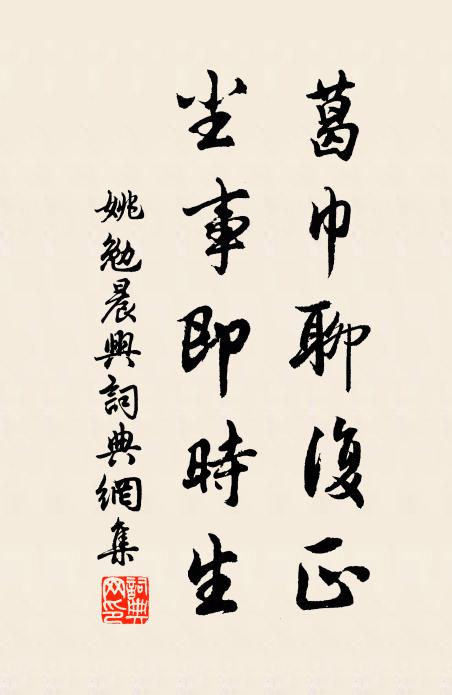 葛巾聊復正
尘事即時生
姚勉晨興詞典網集
詞典网印